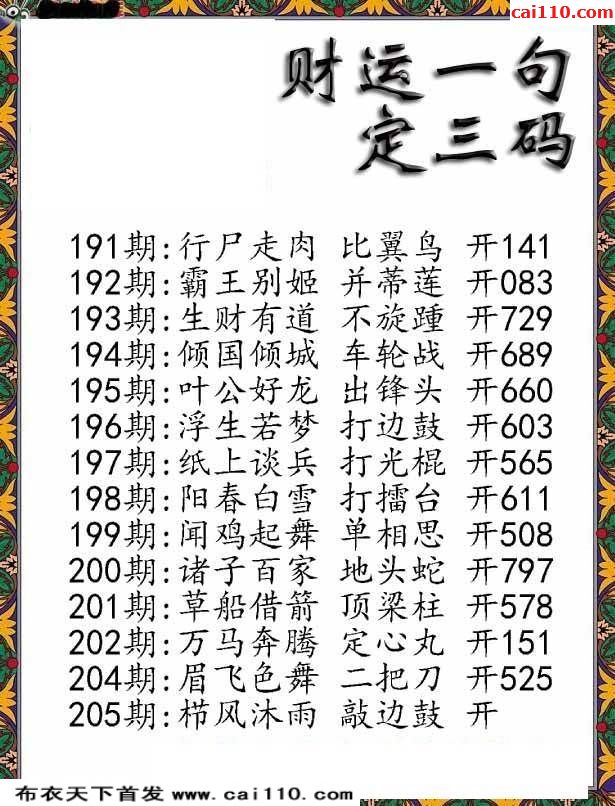 cai110.com
财运一句
定三码
191期:行尸走肉 比翼鸟 开141
192期:霸王别姬 并蒂莲 开083
193期:生财有道 不旋踵 开729
194期:倾国倾城 车轮战 开689
195期:叶公好龙 出锋头 开660
196期:浮生若梦 打边鼓 开603
197期:纸上谈兵 打光棍 开565
198期:阳春白雪 打擂台 开611
199期:闻鸡起舞 单相思 开508
200期:诸子百家 地头蛇 开797
201期:草船借箭 顶梁柱 开578
202期:万马奔腾 定心丸 开151
204期:眉飞色舞 二把刀 开525
205期:栉风沐雨 敲边鼓 开
布衣天下首发 www.cai110.com